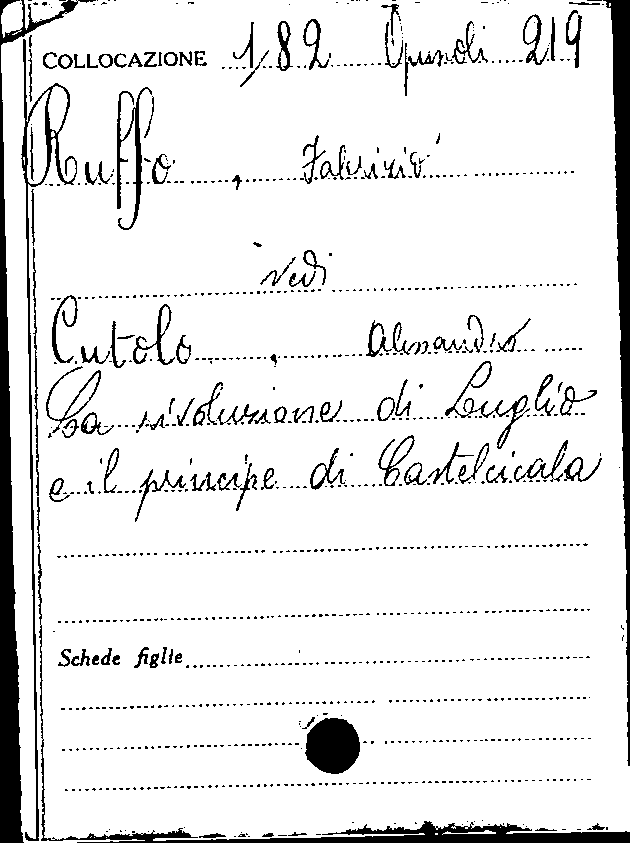 COLLOCAZIONE 1/82 Opuscoli 219
Ruffo, Fabrizio
vedi
Cutolo, Alessandro
La rivoluzione di Luglio
e il principe di Castelcicala
Schede figlie